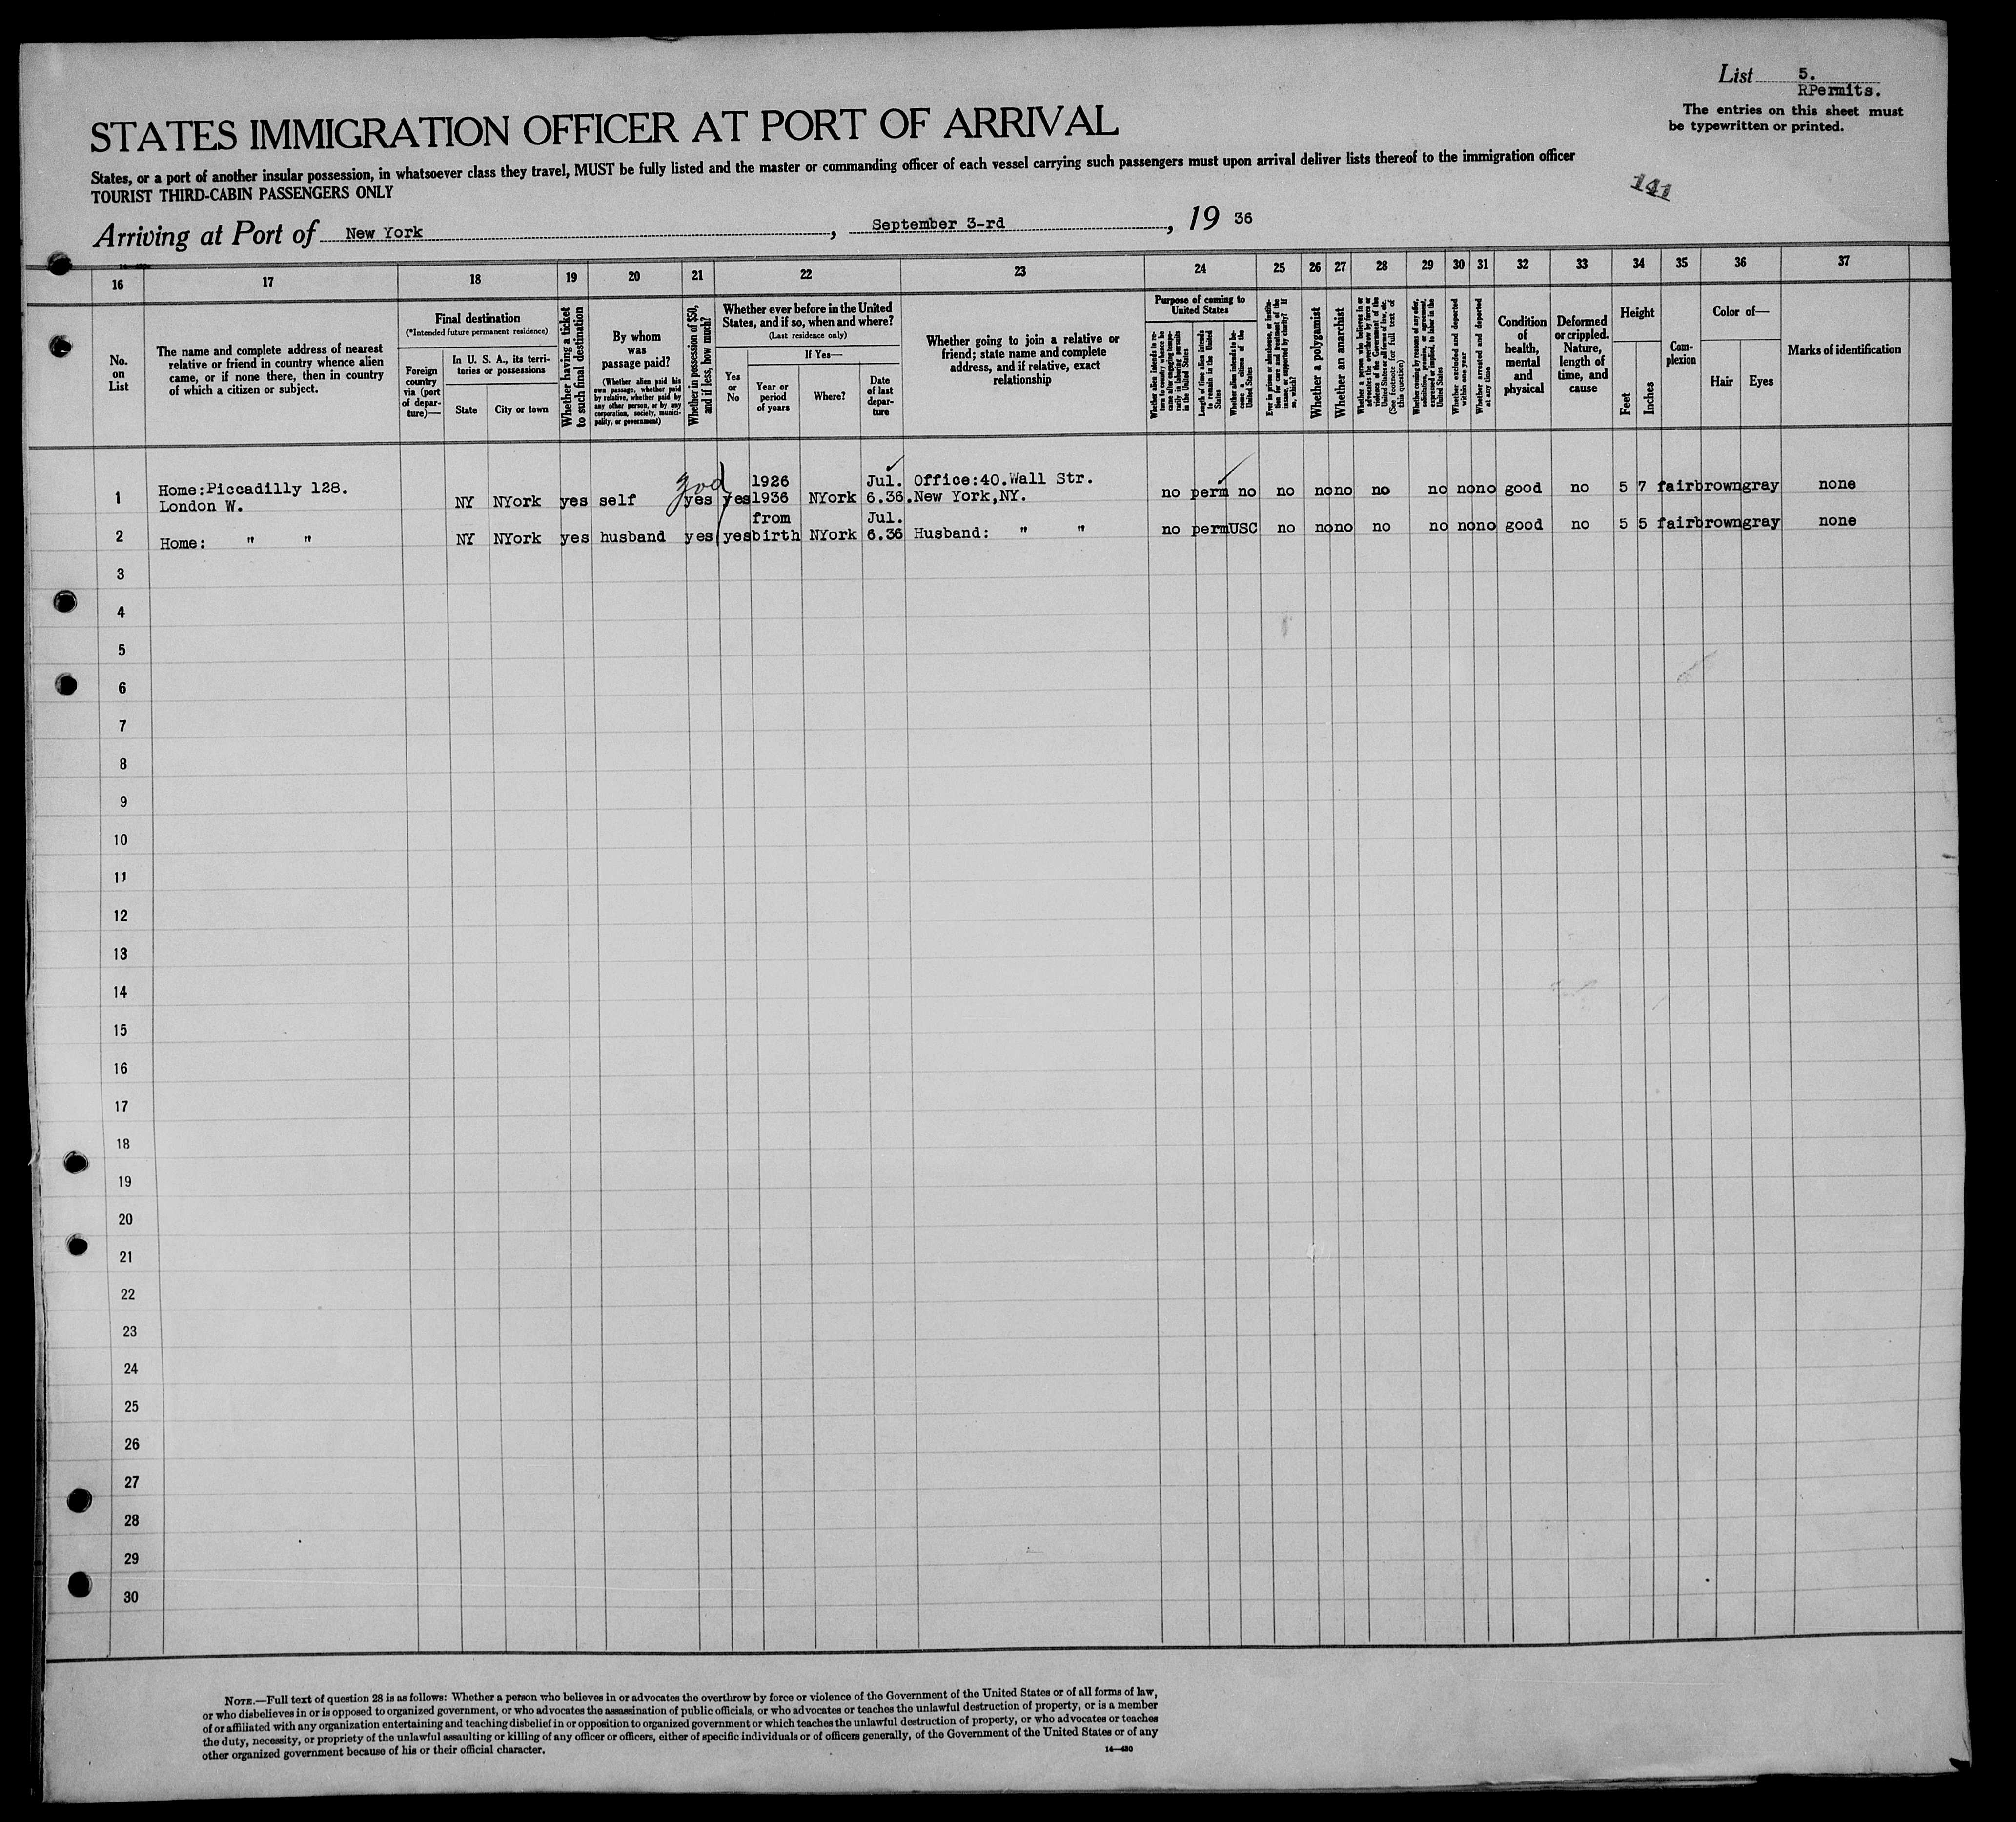 List 5.
RPermits.
The entries on this sheet must
be typewritten or printed.
STATES IMMIGRATION OFFICER AT PORT OF ARRIVAL
States, or a port of another insular possession, in whatsoever class they travel, MUST be fully listed and the master or commanding officer of each vessel carrying such passengers must upon arrival deliver lists thereof to the immigration officer
TOURIST THIRD-CABIN PASSENGERS ONLY
141
Arriving at Port of New York, September 3-rd, 19 36
16 17 18 19 20 21 22 23 24 25 26 27 28 29 30 31 32 33 34 35 36 37
No.
on
List
The name and complete address of nearest
relative or friend in country whence alien
came, or if none there, then in country
of which a citizen or subject.
Final destination
(*Intended future permanent residence)
Foreign
country
via (port
of depar-
ture)—
In U. S. A., its terri-
tories or possessions
State
City or town
Whether having a ticket
to such final destination
By whom
was
passage paid?
(Whether alien paid his
own passage, whether paid
by relative, whether paid by
any other person, or by any
corporation, society, munici-
pality, or government)
Whether in possession of $50,
and if less, how much?
Whether ever before in the United
States, and if so, when and where?
(Last residence only)
Yes
or
No
If Yes—
Year or
period
of years
Where?
Date
of last
depar-
ture
Whether going to join a relative or
friend; state name and complete
address, and if relative, exact
relationship
Purpose of coming to
United States
Whether alien intends to re-
turn to country whence he
came after engaging tempo-
rarily in laboring pursuits
in the United States
Length of time alien intends
to remain in the United
States
Whether alien intends to be-
come a citizen of the
United States
Ever in prison or almshouse, or institu-
tion for care and treatment of the
insane, or supported by charity? If
so, which?
Whether a polygamist
Whether an anarchist
Whether a person who believes in or
advocates the overthrow by force or
violence of the Government of the
United States or all forms of law, etc.
(See footnote for full text of
this question)
Whether coming by reason of any offer,
solicitation, promise, or agreement,
expressed or implied, to labor in the
United States
Whether excluded and deported
within one year
Whether arrested and deported
at any time
Condition
of
health,
mental
and
physical
Deformed
or crippled.
Nature,
length of
time, and
cause
Height
Feet
Inches
Com-
plexion
Color of—
Hair
Eyes
Marks of identification
1926 Jul. Office:40.Wall Str.
1 Home:Piccadilly 128. NY NYork yes self yes yes 1936 NYork 6.36. New York,NY. no perm no no no no no no no no good no 5 7 fair brown gray none
London W.
from Jul.
2 Home: " " NY NYork yes husband yes yes birth NYork 6.36 Husband: " " no perm USC no no no no no no no good no 5 5 fair brown gray none
3
4
5
6
7
8
9
10
11
12
13
14
15
16
17
18
19
20
21
22
23
24
25
26
27
28
29
30
NOTE.—Full text of question 28 is as follows: Whether a person who believes in or advocates the overthrow by force or violence of the Government of the United States or of all forms of law,
or who disbelieves in or is opposed to organized government, or who advocates the assassination of public officials, or who advocates or teaches the unlawful destruction of property, or is a member
of or affiliated with any organization entertaining and teaching disbelief in or opposition to organized government or which teaches the unlawful destruction of property, or who advocates or teaches
the duty, necessity, or propriety of the unlawful assaulting or killing of any officer or officers, either of specific individuals or of officers generally, of the Government of the United States or of any
other organized government because of his or their official character.
14—430